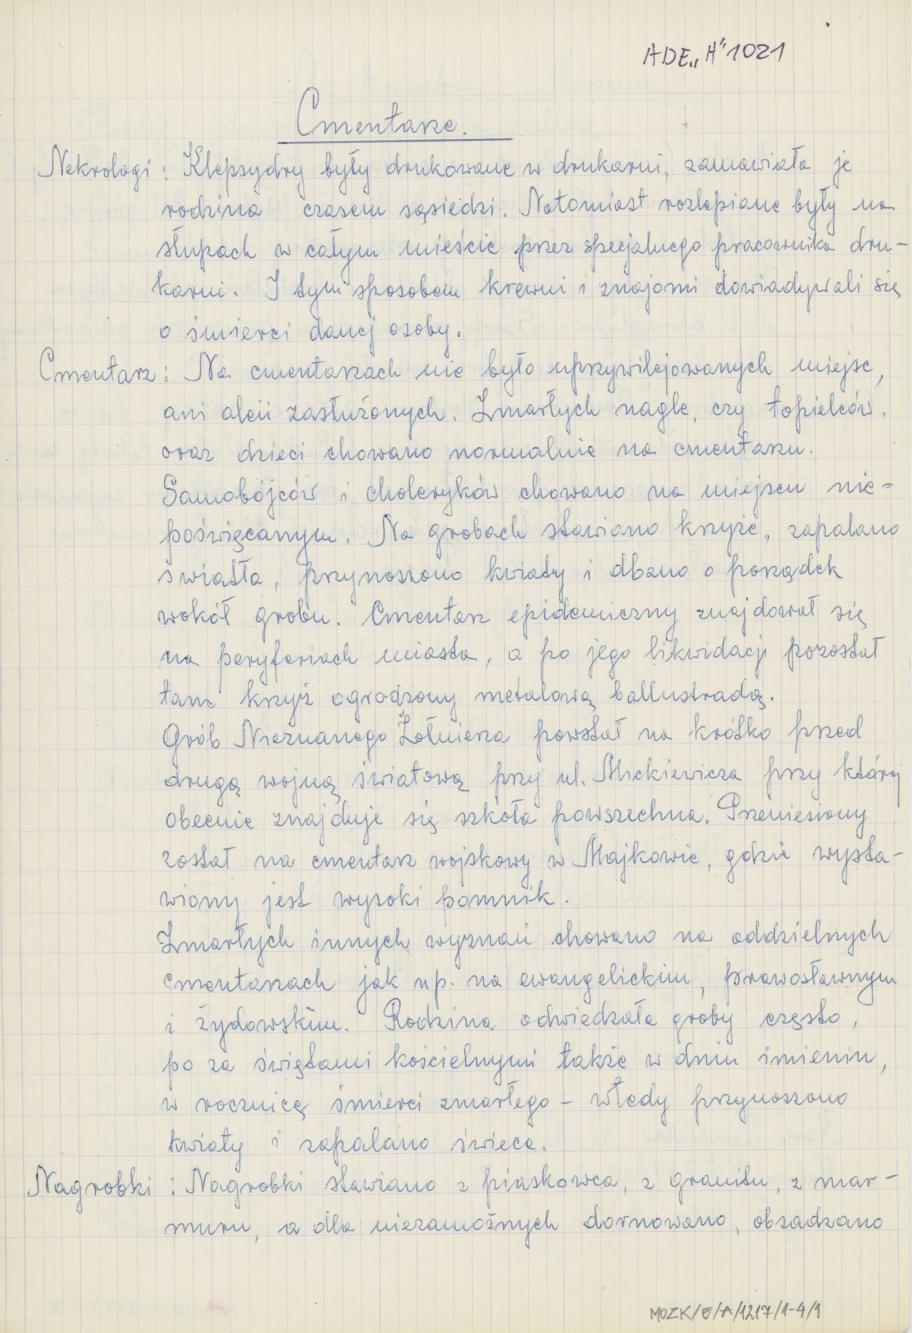 ADE „H” 1021
Cmentarze.
Nekrologi : Klepsydry były drukowane w drukarni, zamawiała je
rodzina czasem sąsiedzi. Natomiast rozlepiane były na
słupach w całym mieście przez specjalnego pracownika dru-
karni. I tym sposobem krewni i znajomi dowiadywali się
o śmierci danej osoby.
Cmentarz : Na cmentarzach nie było uprzywilejowanych miejsc,
ani aleii zasłużonych. Zmarłych nagle, czy topielców,
oraz dzieci chowano normalnie na cmentarzu.
Samobójców i choleryków chowano na miejscu nie-
poświęcanym. Na grobach stawiano krzyże, zapalano
światła, przynoszono kwiaty i dbano o porządek
wokół grobu. Cmentarz epidemiczny znajdował się
na peryferiach miasta, a po jego likwidacji pozostał
tam krzyż ogrodzony metalową ballustradą.
Grób Nieznanego Żołnierza powstał na krótko przed
drugą wojną światową przy ul. Mickiewicza przy której
obecnie znajduje się szkoła powszechna. Przeniesiony
został na cmentarz wojskowy w Majkowie, gdzie wysta-
wiony jest wysoki pomnik.
Zmarłych innych wyznań chowano na oddzielnych
cmentarzach jak np. na ewangelickim, prawosławnym
i żydowskim. Rodzina odwiedzała groby często,
po za świętami kościelnymi także w dniu imienin,
w rocznicę śmierci zmarłego – wtedy przynoszono
kwiaty i zapalano świece.
Nagrobki : Nagrobki stawiano z piaskowca, z granitu, z mar-
muru, a dla niezamożnych dornowano, obsadzano
MOZK/E/A/1217/1-4/1